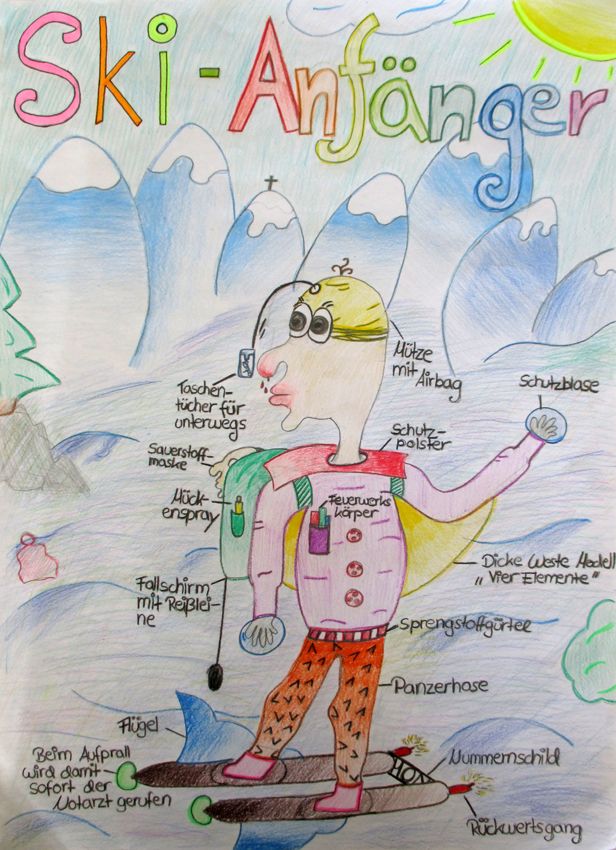 Ski-Anfänger
Mütze
mit
Airbag
Taschen-
tücher für
unterwegs
Schutzblase
Schutz-
polster
Sauerstoff-
maske
Mück-
enspray
Feuerwerks
körper
Dicke Weste Modell
„Vier Elemente"
Fallschirm
mit Reißlei-
ne
Sprengstoffgürtel
Panzerhose
Flügel
Beim Aufprall
wird damit
sofort der
Notarzt gerufen
HOT
Nummernschild
Rückwertsgang